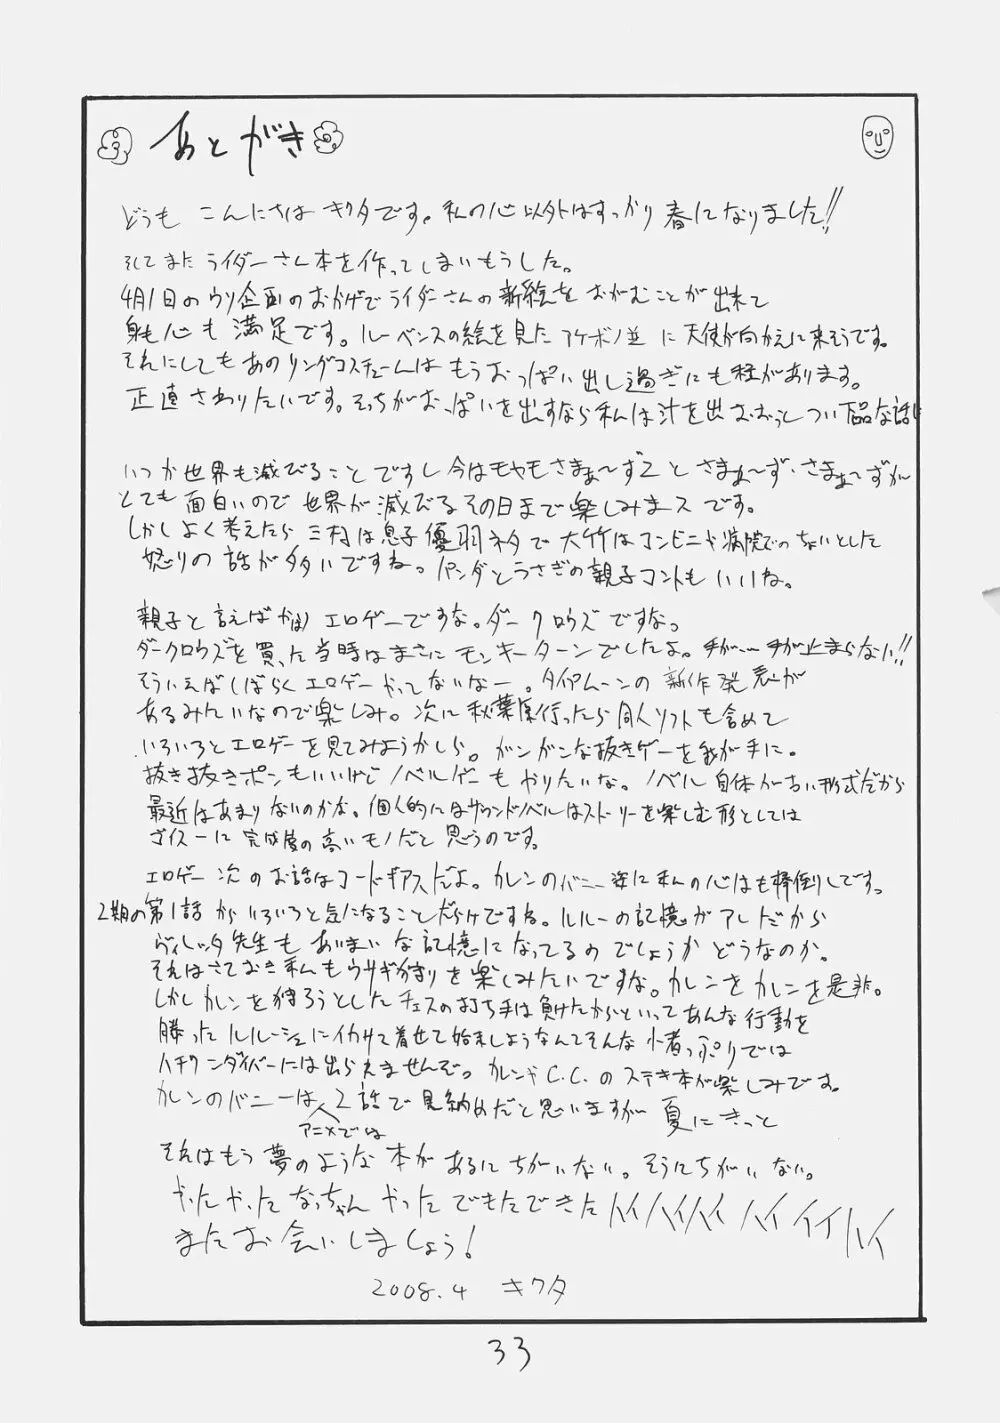 あとがき
どうも こんにちは キクタです。私の心以外はすっかり春になりました!!
そしてまた ライダーさん本を作ってしまいもうした。
4月1日のウソ企画のおかげでライダーさんの新絵をおがむことが出来て
身も心も満足です。ルーベンスの絵を見た アケボノ並に天使が向かえに来そうです。
それにしてもあのリングコスチュームはもうおっぱい出し過ぎにも程があります。
正直さわりたいです。そっちがおっぱいを出すなら私は汁を出 おおっとつい下品な話に
いつか世界も滅びることですし今はモヤモヤさまぁ〜ず2とさまぁ〜ず・さまぁ〜ずが
とても面白いので世界が滅びるその日まで楽しみまスです。
しかしよく考えたら三村は息子優羽ネタで大竹はコンビニや病院でのちょいとした
怒りの話が多いですね。パンダとうさぎの親子コントもいいね。
親子と言えばエロゲーですな。ダークロウズですな。
ダークロウズを買った当時はまさにモンキーターンでしたよ。手が…手が止まらない!!
そういえばしばらくエロゲーやってないなー。タイプムーンの新作発表が
あるみたいなので楽しみ。次に秋葉原行ったら同人ソフトも含めて
いろいろとエロゲーを見てみようかしら。ガンガンな抜きゲーを我が手に。
抜き抜きポンもいいけどノベルゲーもやりたいな。ノベル自体が古い形式だから
最近はあまりないのかな。個人的にはサウンドノベルはストーリーを楽しむ形としては
サイコーに完成度の高いモノだと思うのです。
エロゲー次のお話はコードギアスだよ。カレンのバニー姿に私の心はも棒倒しです。
2期の第1話からいろいろと気になることだらけですね。ルルーの記憶がアレだから
ヴィレッタ先生もあいまいな記憶になってるのでしょうかどうなのか。
それはさておき私もウサギ狩りを楽しみたいですな。カレンをカレンを是非。
しかしカレンを狩ろうとしたチェスの打ち手は負けたからといってあんな行動を
勝ったルルーシュにイカサマ着せて始末しようなんてそんな小者っぷりでは
ハチワンダイバーには出られませんぞ。カレンやC.C.のステキ本が楽しみです。
カレンのバニーはアニメでは2話で見納めだと思いますが夏にきっと
それはもう夢のような本があるにちがいない。そうにちがいない。
やったやったなっちゃんやったできたできたハイハイハイハイハイイイハイ
またお会いしましょう!
2008.4 キクタ
33